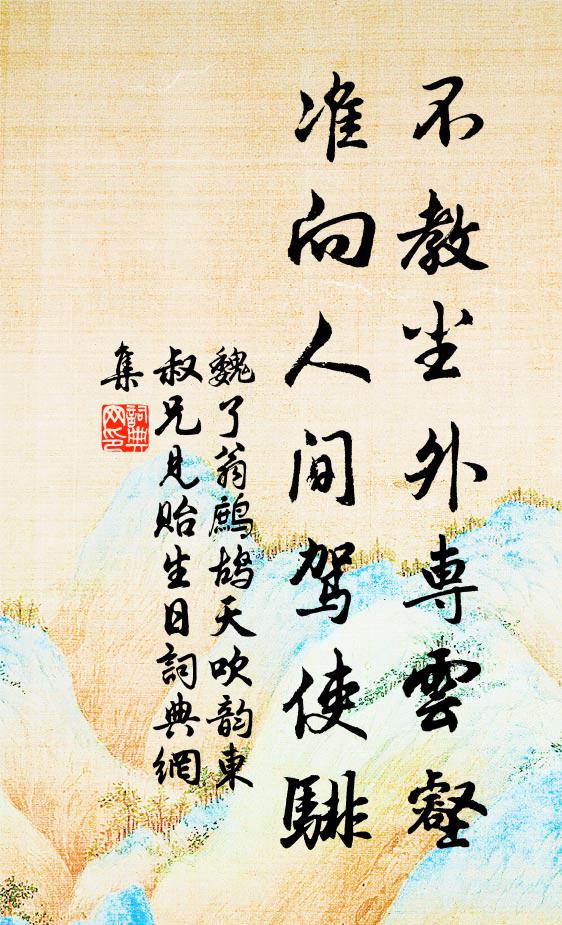 不教尘外専雲壑
准向人间驾使騑
魏了翁鹧鸪天吹韵東
叔兄见贻生日詞典網
集
詞典网印